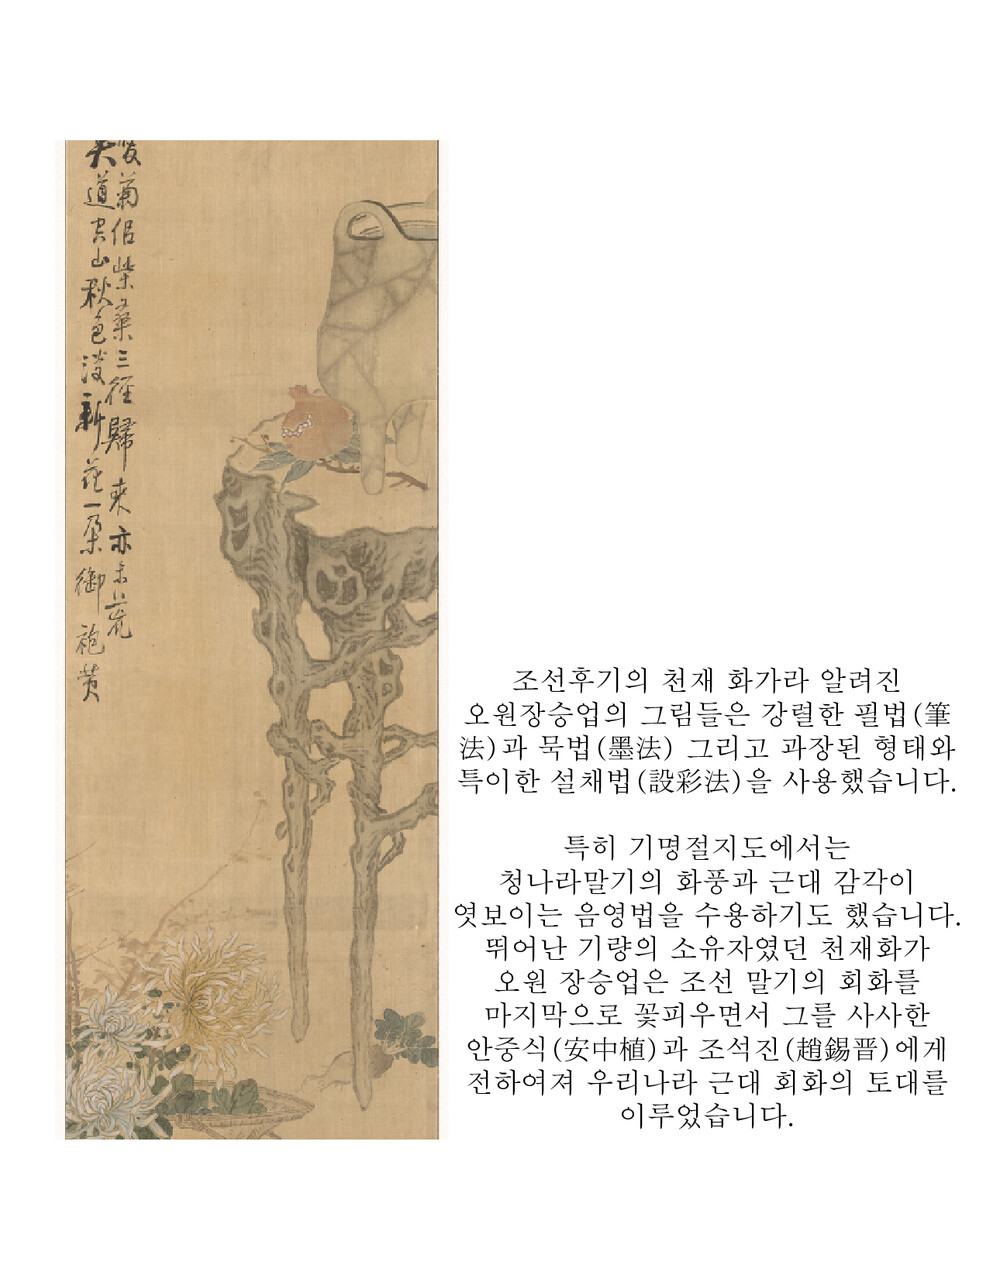 菊侶柴桑三徑歸來亦未荒
莫道空山秋色淡新花一朶御袍黃
조선후기의 천재 화가라 알려진
오원장승업의 그림들은 강렬한 필법(筆
法)과 묵법(墨法) 그리고 과장된 형태와
특이한 설채법(設彩法)을 사용했습니다.
특히 기명절지도에서는
청나라말기의 화풍과 근대 감각이
엿보이는 음영법을 수용하기도 했습니다.
뛰어난 기량의 소유자였던 천재화가
오원 장승업은 조선 말기의 회화를
마지막으로 꽃피우면서 그를 사사한
안중식(安中植)과 조석진(趙錫晋)에게
전하여져 우리나라 근대 회화의 토대를
이루었습니다.